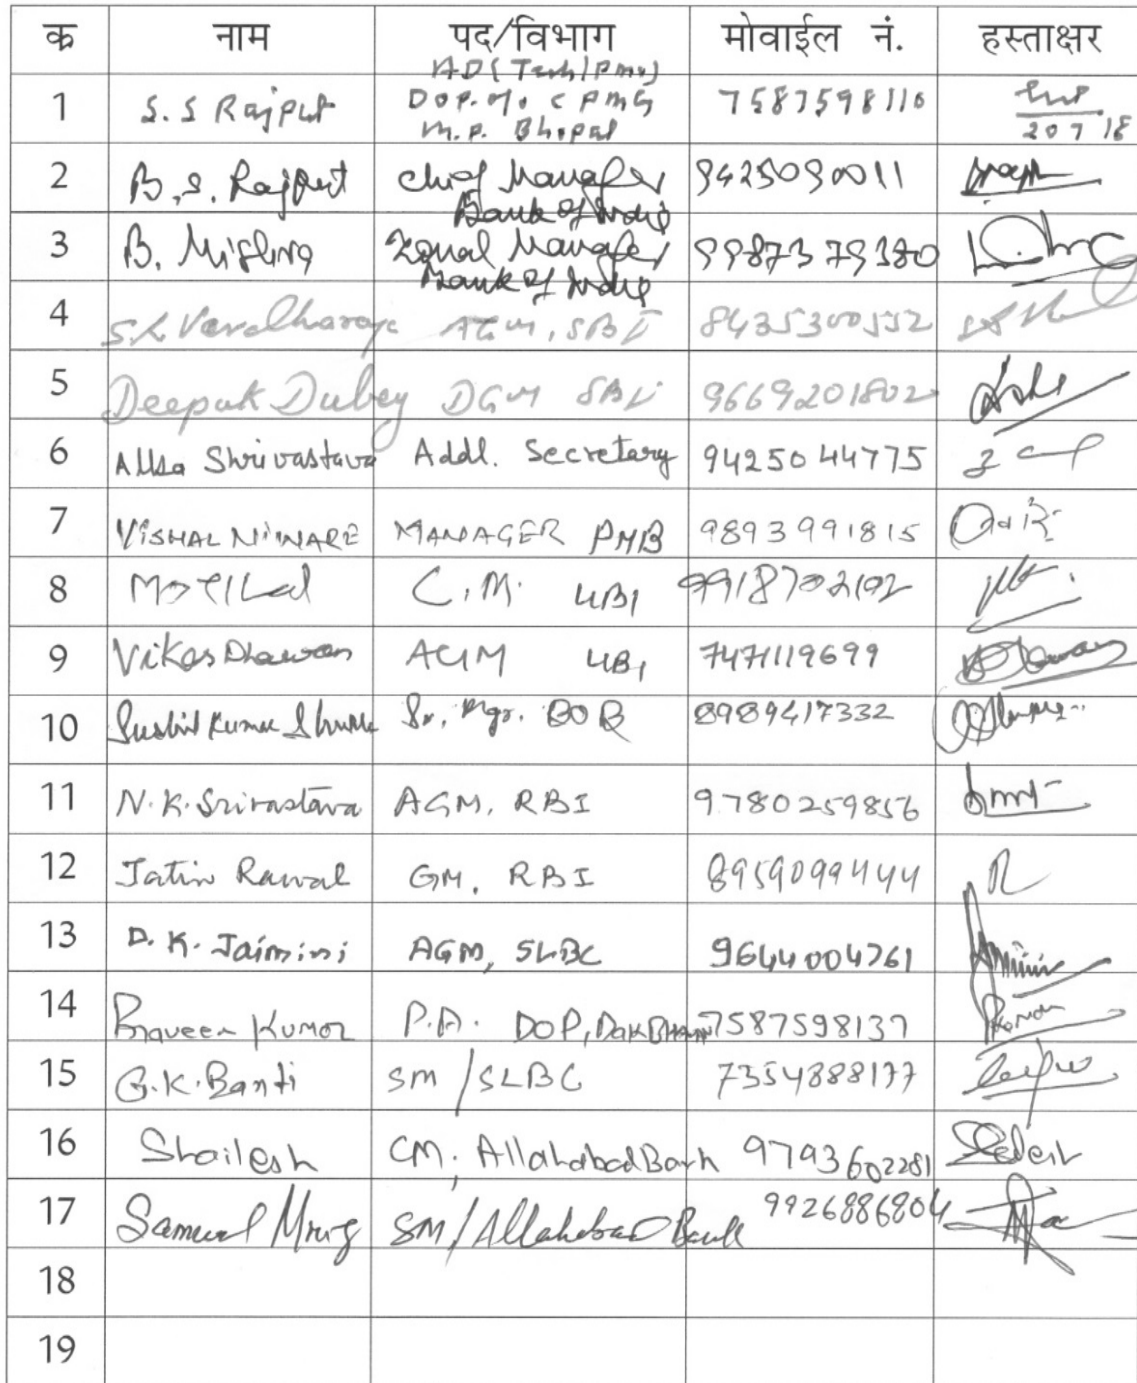 क्र नाम पद/विभाग मोवाईल नं. हस्ताक्षर
AD (Tech/PMU)
1 S.S Rajput DOP. O/o CPMG 7587598110
M.P. Bhopal 20 7 18
2 B.S. Rajput Chief Manager 9425090011
Bank of India
3 B. Mishra Zonal Manager 9987379380
Bank of India
4 S.K Varadharaja AGM, SBI 8435300552
5 Deepak Dubey DGM SBI 9669201802
6 Alka Shrivastava Addl. Secretary 9425044775
7 VISHAL NIWARE MANAGER PNB 9893991815
8 Motilal C.M. UBI 9918702192
9 Vikas Dhawan AGM UBI 7471119699
10 Sushil Kumar Shukla Sr. Mgr. BOB 8989417332
11 N.K. Srivastava AGM, RBI 9780259856
12 Jatin Rawal GM, RBI 8959099444
13 D.K. Jaimini AGM, SLBC 9644004761
14 Praveen Kumar P.A. DOP, DAK BHAWAN 7587598137
15 G.K. Banti SM/SLBC 7354888177
16 Shailesh CM, Allahabad Bank 9793602281
17 Samuel SM/Allahabad Bank 9926886804
18
19